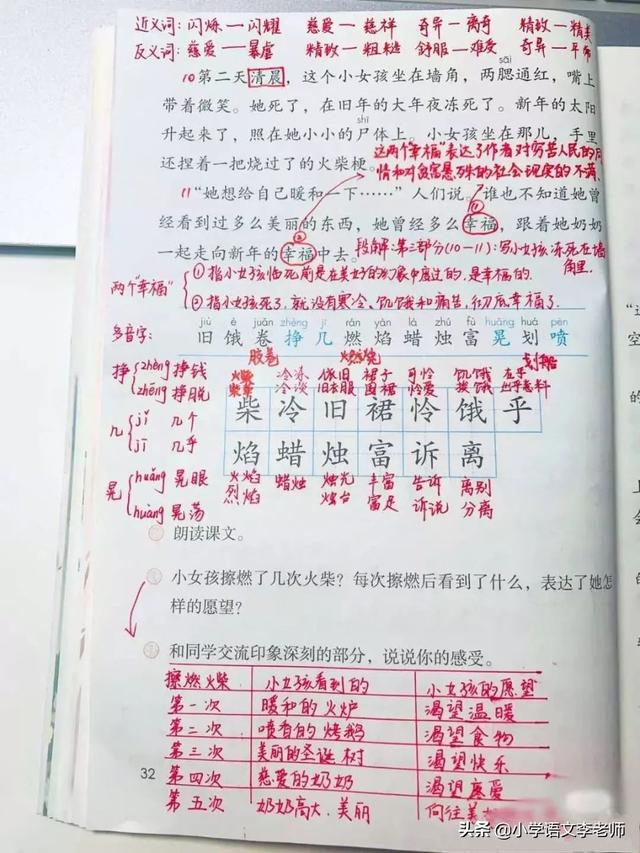 近义词：闪烁—闪耀 慈爱—慈祥 奇异—离奇 精致—精美
反义词：慈爱—暴虐 精致—粗糙 舒服—难受 奇异—平
sāi
10第二天清晨，这个小女孩坐在墙角，两腮通红，嘴上
带着微笑。她死了，在旧年的大年夜冻死了。新年的太阳
shī
升起来了，照在她小小的尸体上。小女孩坐在那儿，手里
还捏着一把烧过了的火柴梗。
这两个"幸福"表达了作者对穷苦人民的同
情和对贫富悬殊的社会现实的不满。
11“她想给自己暖和一下……”人们说。谁也不知道她曾
经看到过多么美丽的东西，她曾经多么幸福，跟着她奶奶
①
②
一起走向新年的幸福中去。
段解：第三部分(10—11)：写小女孩冻死在墙
角里.
两个"幸福"
①指小女孩临死前是在美好的幻象中度过的，是幸福的.
②指小女孩死了，就没有寒冷、饥饿和痛苦，彻底幸福了.
jiù è juǎn zhēng jǐ rán yàn là zhú fù huǎng huá pēn
多音字：
旧 饿 卷 挣 几 燃 焰 蜡 烛 富 晃 划 喷
胶卷 燃烧 划船
挣 zhèng 挣钱
zhēng 挣脱
火柴 冷冻 依旧 裙子 可怜 饥饿 在乎
柴草 冷淡 旧衣服 围裙 怜爱 挨饿 出乎意料
柴 冷 旧 裙 怜 饿 乎
几 jǐ 几个
jī 几乎
焰 蜡 烛 富 诉 离
晃 huǎng 晃眼
huàng 晃荡
火焰 蜡烛 烛光 丰富 告诉 离别
烈焰 烛台 富足 诉说 分离
朗读课文。
小女孩擦燃了几次火柴？每次擦燃后看到了什么，表达了她怎
样的愿望？
和同学交流印象深刻的部分，说说你的感受。
擦燃火柴 小女孩看到的 小女孩的愿望
第一次 暖和的火炉 渴望温暖
第二次 喷香的烤鹅 渴望食物
第三次 美丽的圣诞树 渴望快乐
第四次 慈爱的奶奶 渴望疼爱
第五次 奶奶高大、美丽 向往美
32
头条 @小学语文李老师